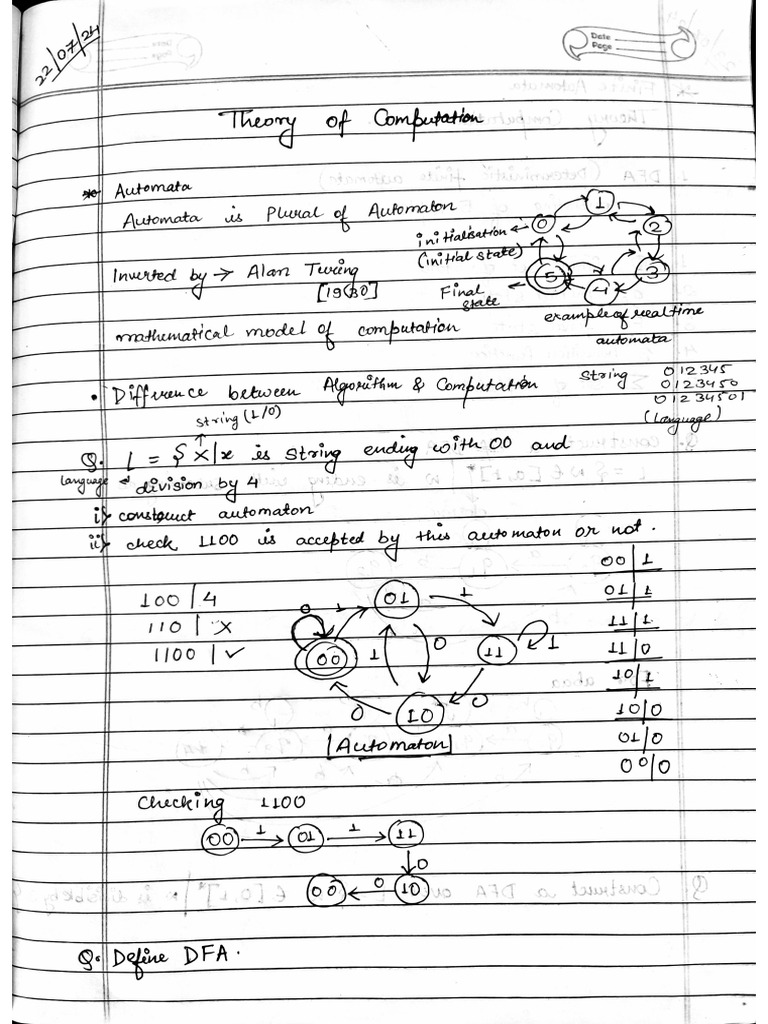 22/07/24
Date
Page
Theory of Computation
* Automata
Automata is Plural of Automaton
initialisation
(initial state)
0 1 2 3 4 5
Inverted by → Alan Turing
[1930]
Final state
example of real time
automata
mathematical model of computation
• Difference between Algorithm & Computation
String 012345
0123450
01234501
(language)
string (1/0)
Q. L = { X/x is string ending with 00 and
language division by 4
i) construct automaton
ii) check 1100 is accepted by this automaton or not.
100 | 4
110 | x
1100 | ✓
00 | 1
01 | 1
11 | 1
11 | 0
10 | 1
10 | 0
01 | 0
00 | 0
0 1 01 1
00 1 0 11 1
0 10 0
[Automaton]
Checking 1100
00 →1 01 →1 11
↓0
00 ←0 10
Q. Define DFA.